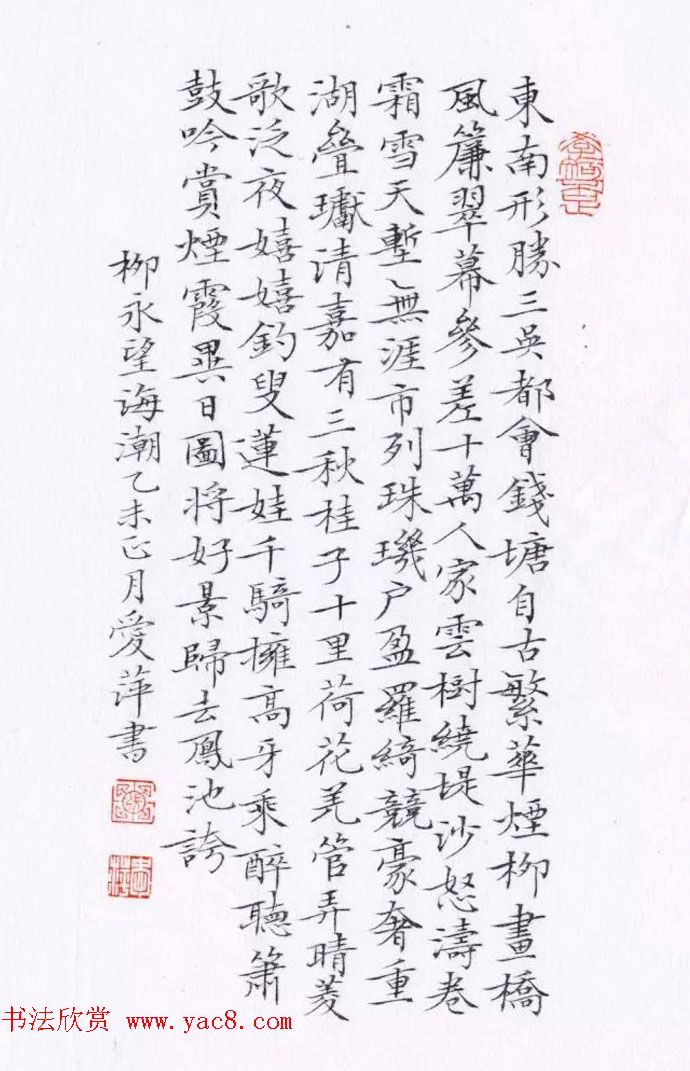 東南形勝三吳都會錢塘自古繁華煙柳畫橋
風簾翠幕參差十萬人家雲樹繞堤沙怒濤卷
霜雪天塹無涯市列珠璣戶盈羅綺競豪奢重
湖疊巘清嘉有三秋桂子十里荷花羌管弄晴菱
歌泛夜嬉嬉釣叟蓮娃千騎擁高牙乘醉聽簫
鼓吟賞煙霞異日圖將好景歸去鳳池誇
柳永望海潮乙未正月愛萍書
书法欣赏 www.yac8.com